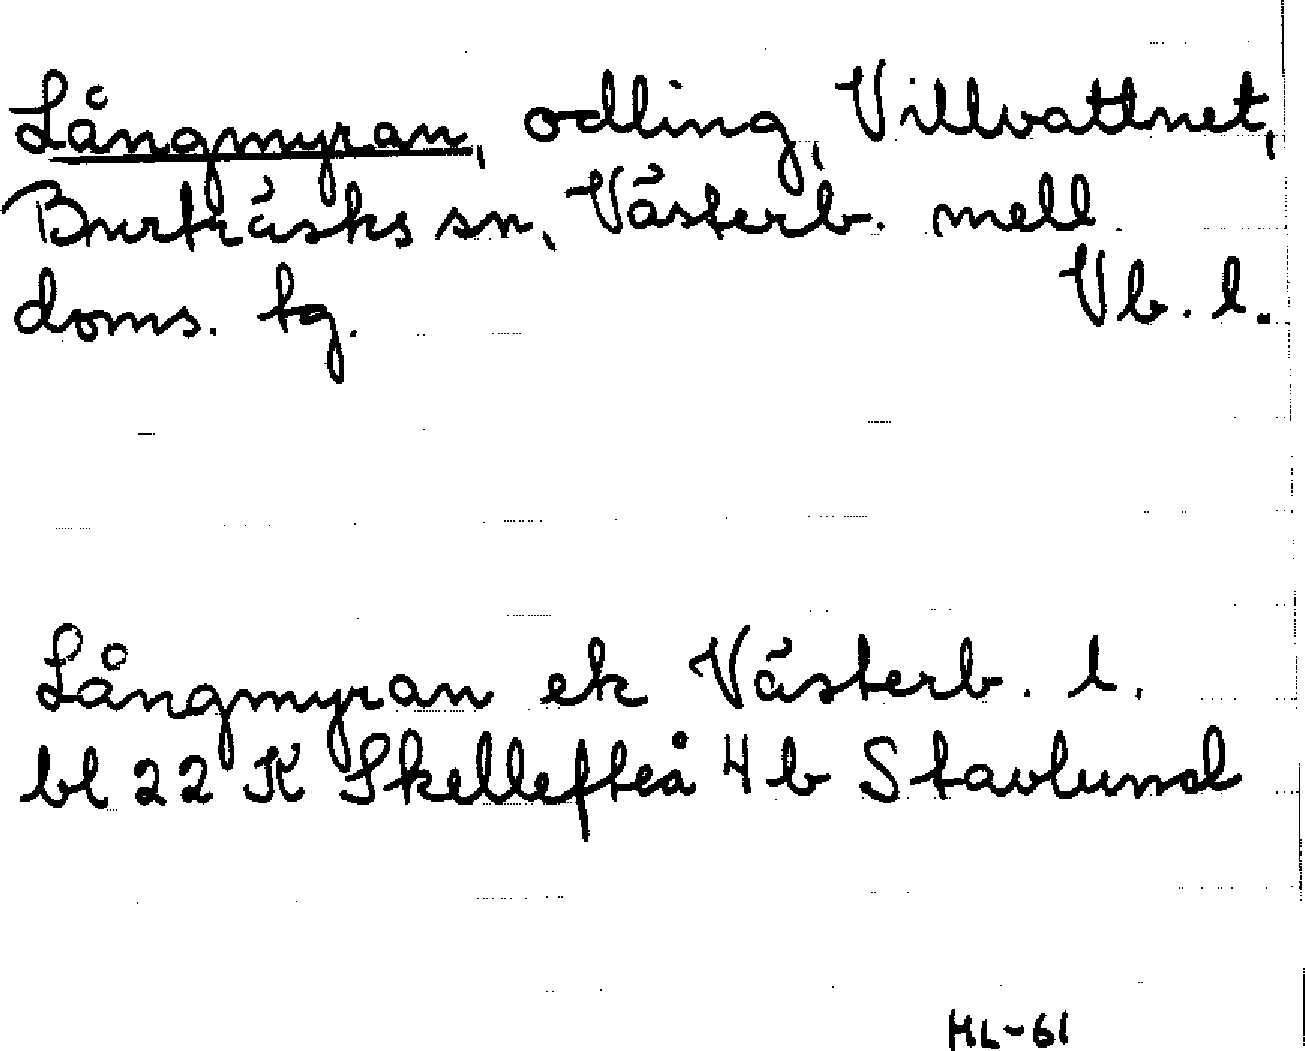 Långmyran, odling, Villvattnet,
Burträsks sn, Västerb. mell
doms. tg. Vb. l.
Långmyran ek Västerb. l.
bl 22 K Skellefteå 4 b Stavlund
HL-61